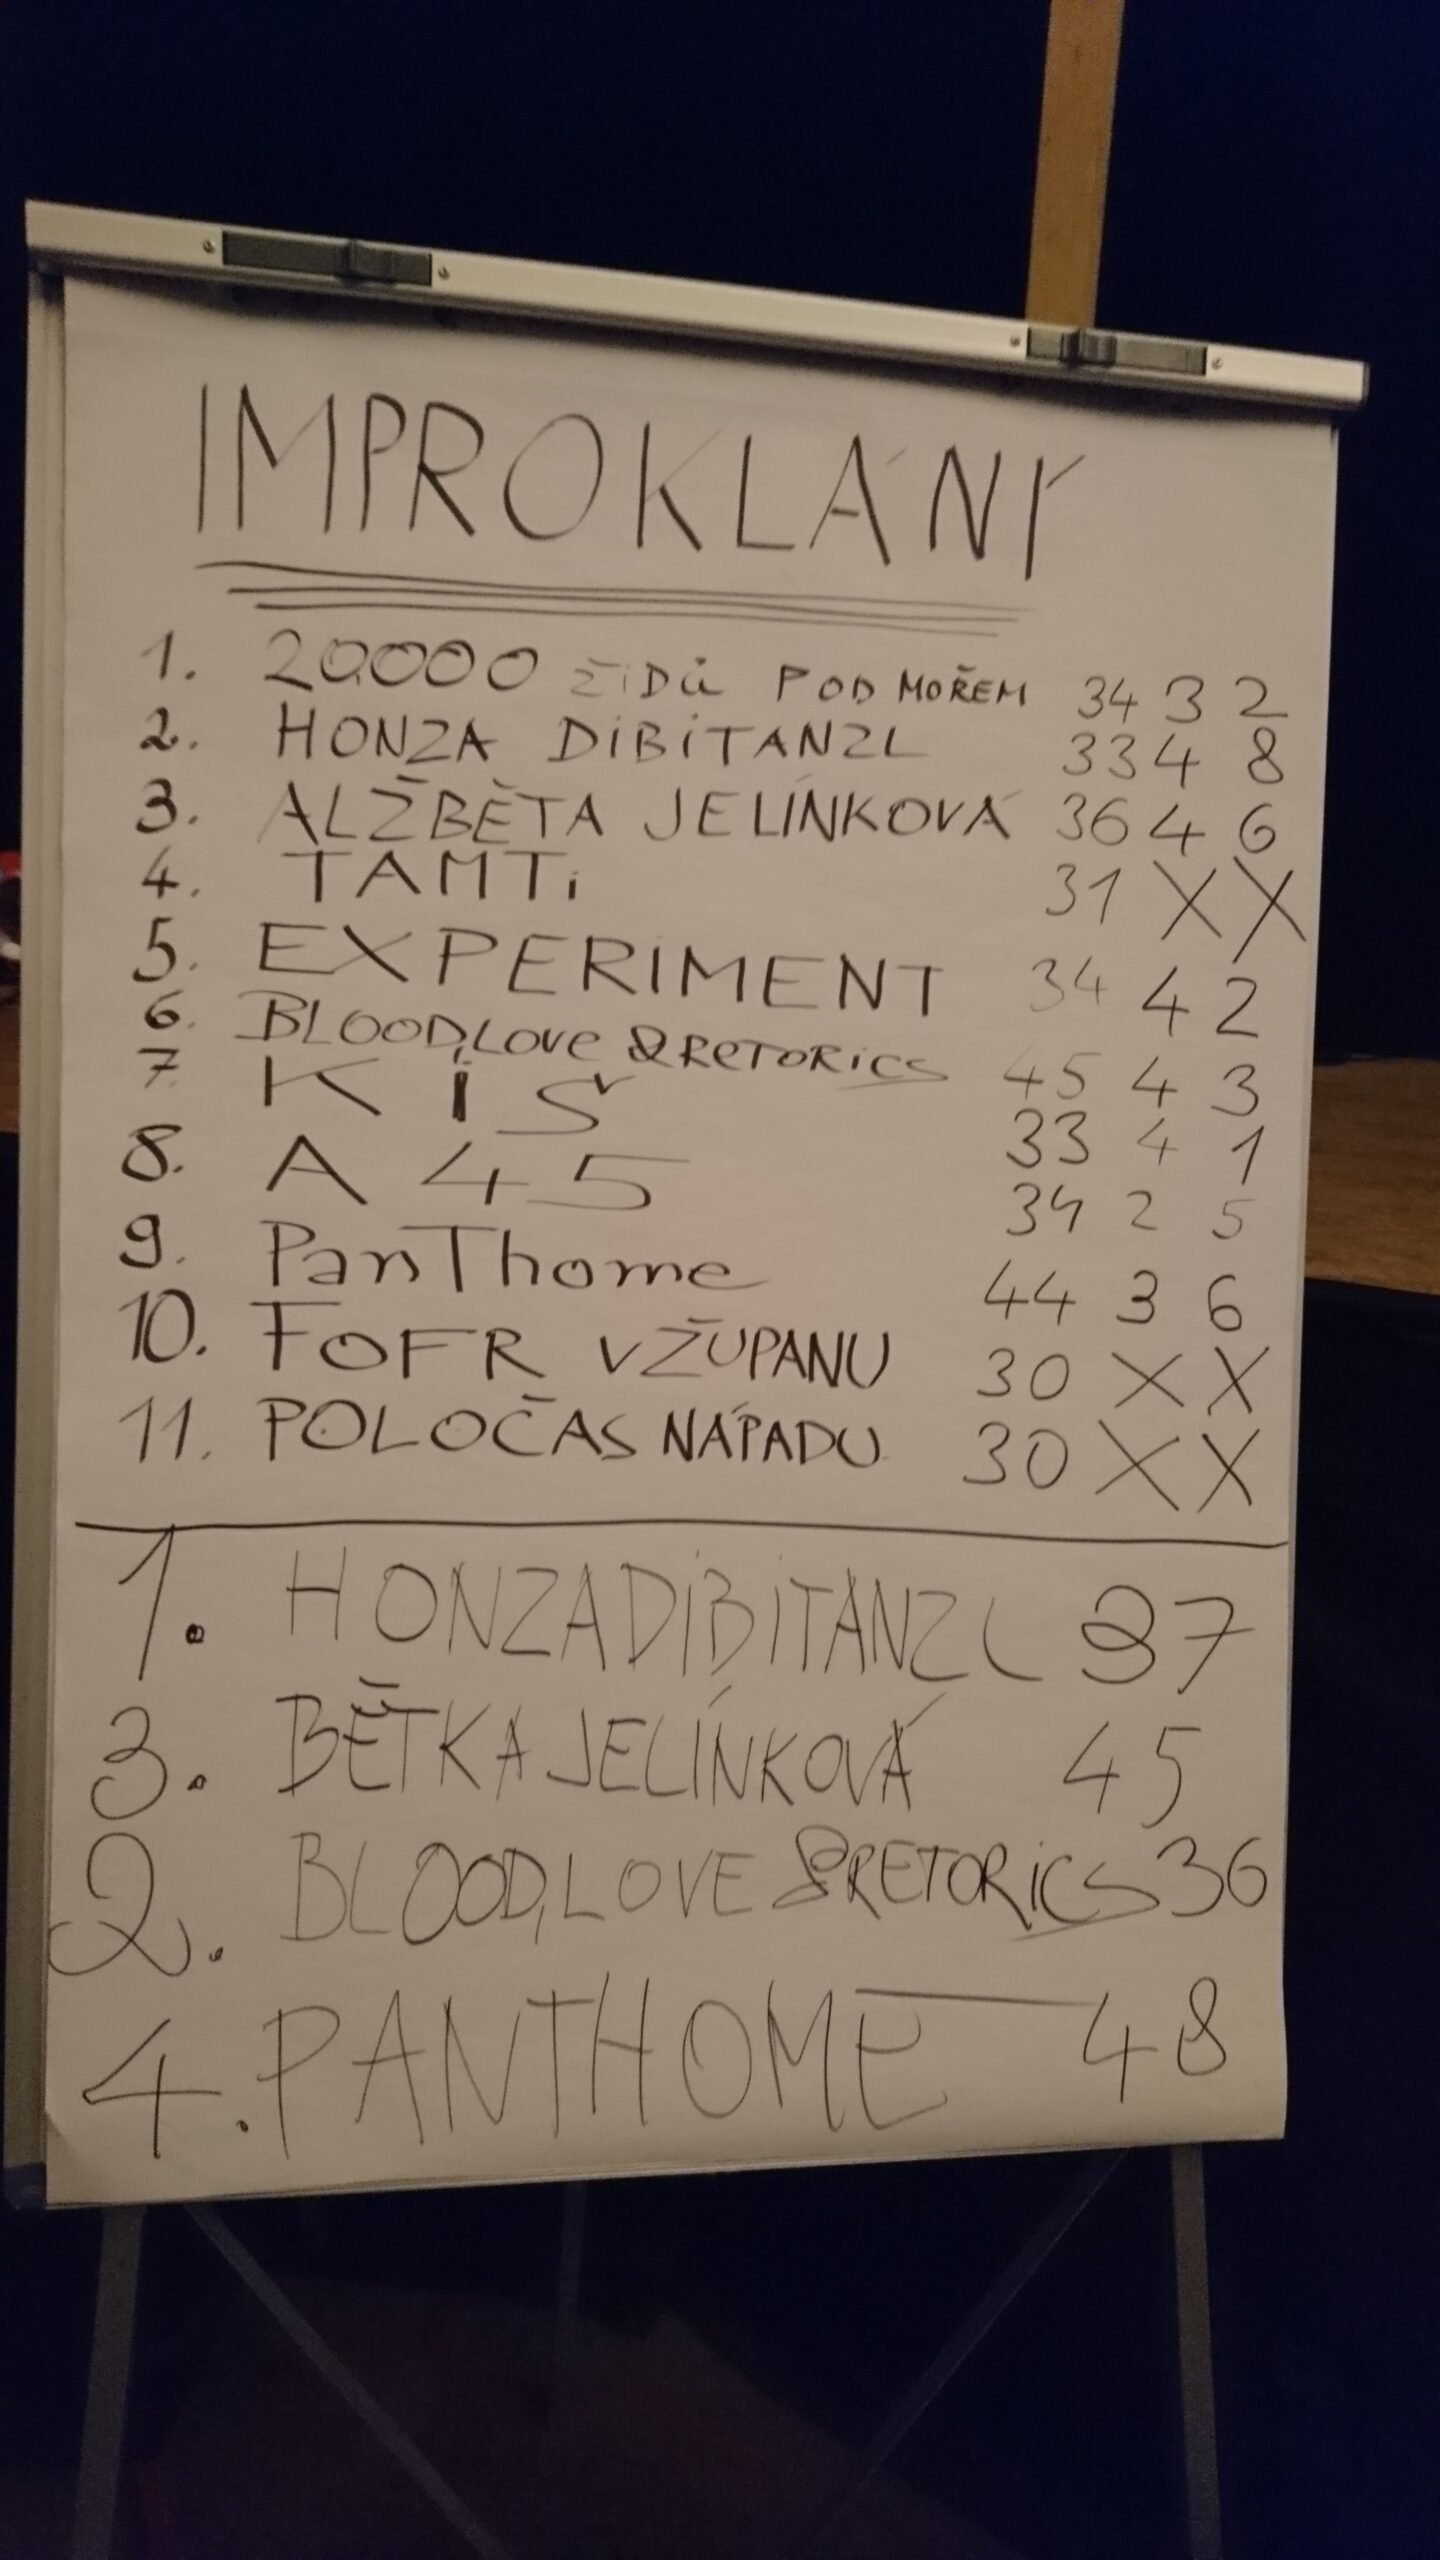 IMPROKLÁNÍ
1. 20.000 ŽIDŮ POD MOŘEM 34 3 2
2. HONZA DIBITANZL 33 4 8
3. ALŽBĚTA JELÍNKOVÁ 36 4 6
4. TAMTi 31 X X
5. EXPERIMENT 34 4 2
6. BLOOD, LOVE & RETORICS 45 4 3
7. KIŠ 33 4 1
8. A 45 34 2 5
9. PanThome 44 3 6
10. FOFR V ŽUPANU 30 X X
11. POLOČAS NÁPADU 30 X X
1. HONZA DIBITANZL 37
3. BĚTKA JELÍNKOVÁ 45
2. BLOOD, LOVE & RETORICS 36
4. PANTHOME 48